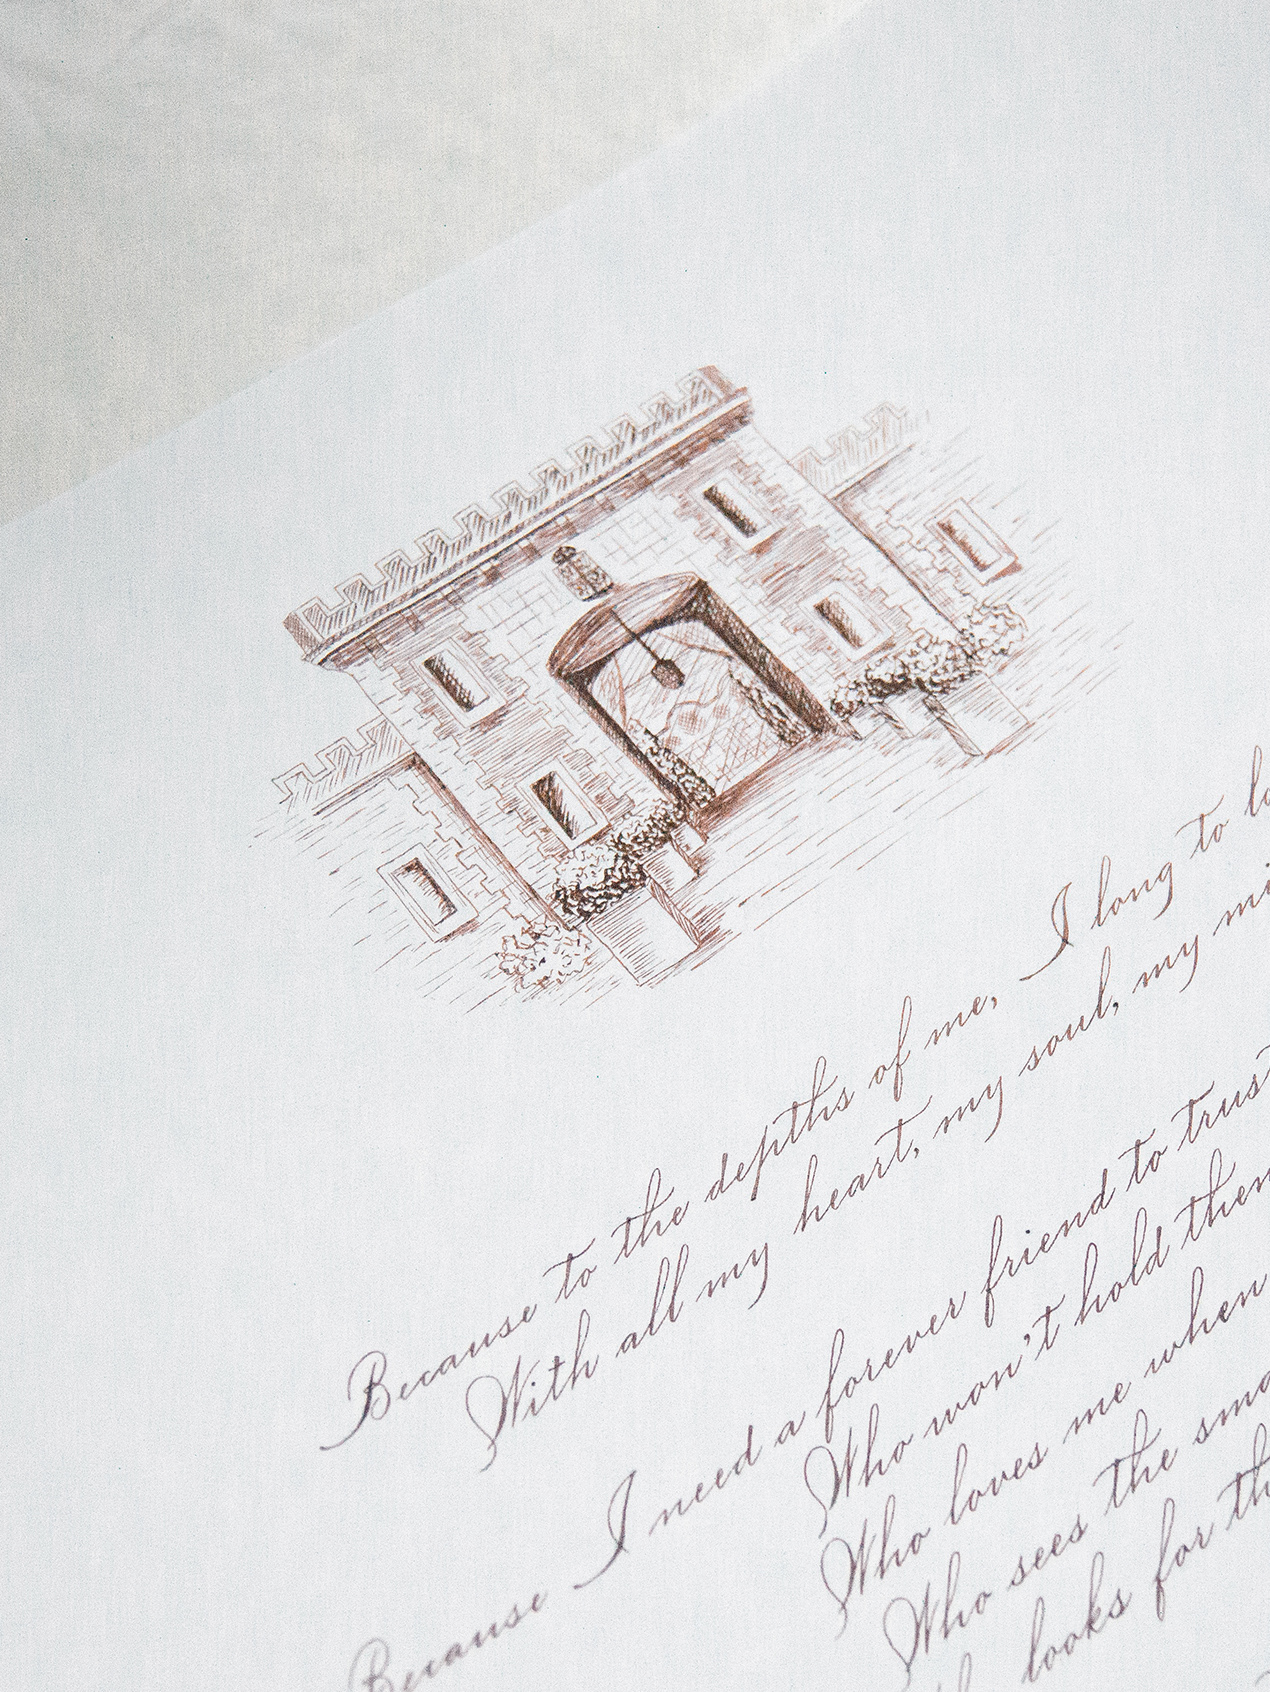 Because to the depths of me, I long to
With all my heart, my soul, my
Because I need a forever friend to trust
Who won't hold
Who loves me when
Who sees the
looks for